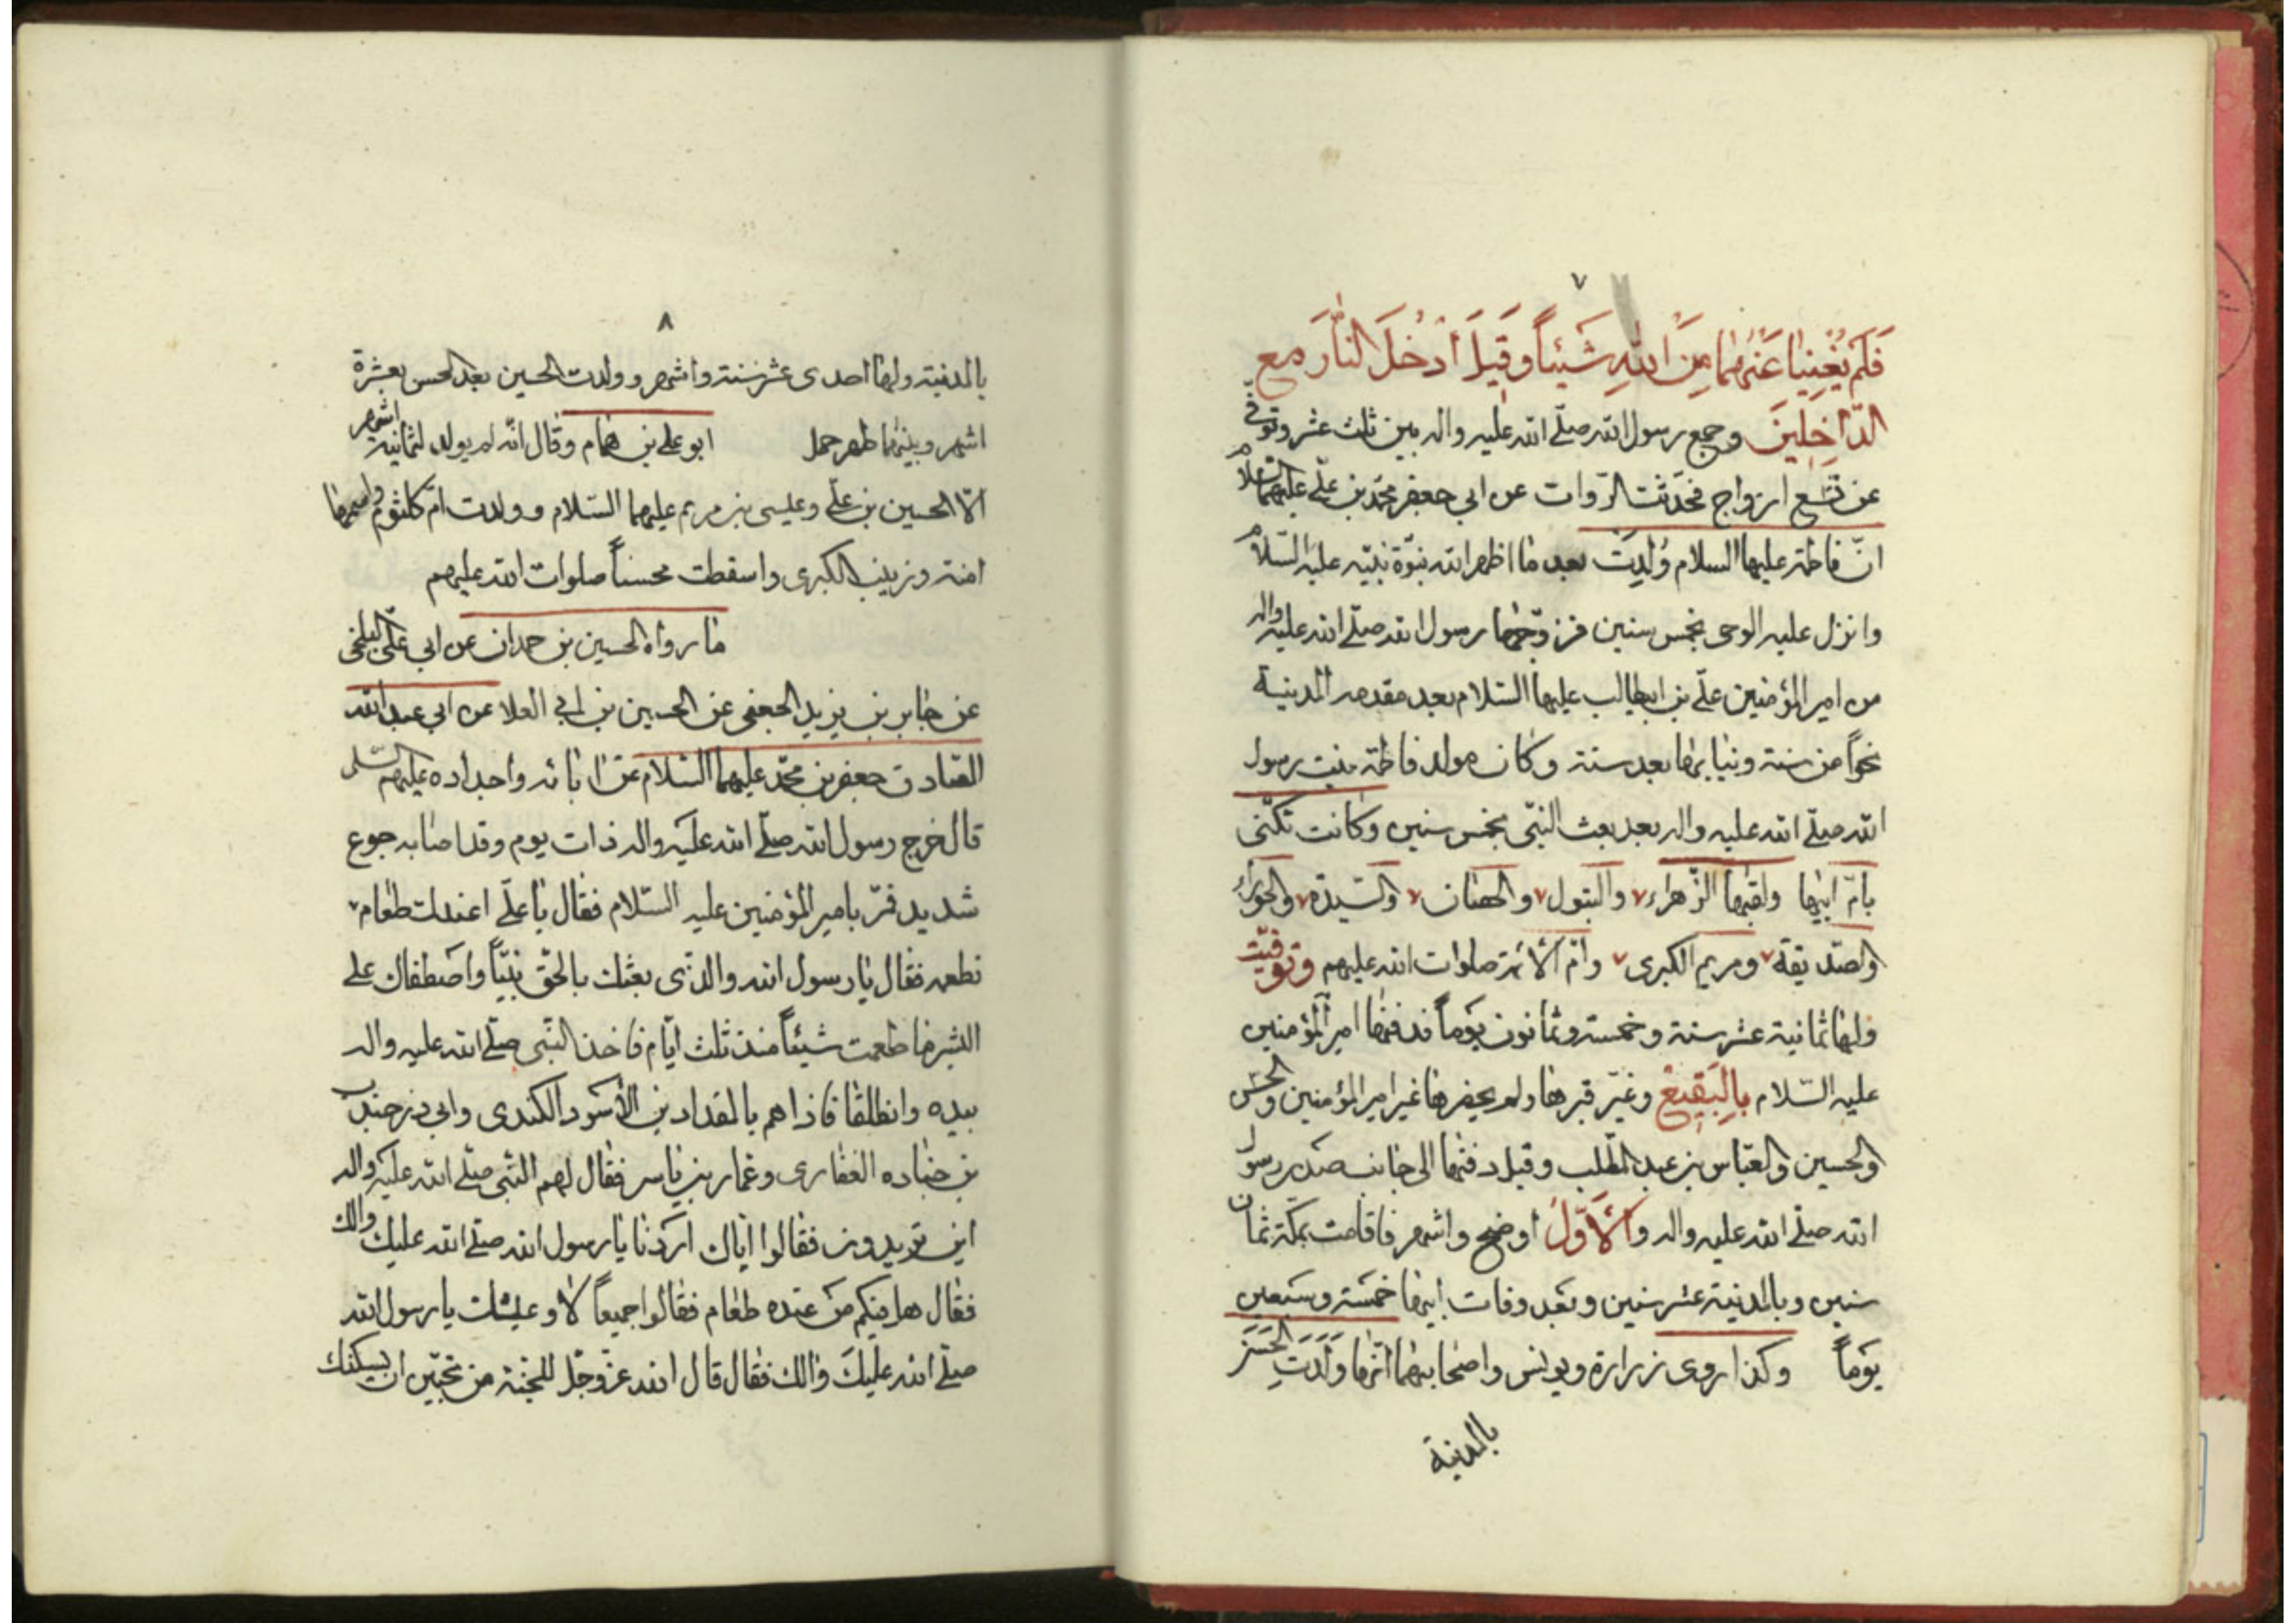 ٧
فَلَم يُغْنِيٰا عَنْهُمٰا مِنَ اللّٰهِ شَيْئاً وَقيلَ اُدْخُلَ النّٰارَ مع
الدّٰاخِلِينَ وجمع رسول الله صلّے الله عليه واله بين ثلث عشر وتوفّي
عن تسْع ازواج فحدّثت الرّوات عن ابي جعفر محمّد بن علّے عليهما السلام
انّ فاطمة عليها السلام وُلِدِتْ بعد ما اظهر الله نبوّة نبيّه عليه السّلام
وانزل عليه الوحى بخمس سنين فزوّجها رسول الله صلّے الله عليه واله
من امير المؤمنين علّے بن ابيطالب عليهما السّلام بعد مقدمه المدينة
نحواً من سنة وبنٰا بها بعد سنة وكان مولد فاطمة بنت رسول
الله صلّے الله عليه واله بعد بعث النبّى بخمس سنين وكانت تكنّى
بامّ ابيها ولقبها الزّهراء والبتول والحصٰان والسّيدة والحوراء
والصّديقة ومريم الكبرى وامّ الائمة صلوات الله عليهم وتوفّيت
ولهٰا ثمٰانية عشر سنة وخمسة وثمانون يوماً فدفنهٰا امير المؤمنين
عليه السّلام بِالبَقِيعْ وغيّر قبرهٰا ولم يحضرهٰا غير امير المؤمنين والحسن
والحسين والعبّاس بن عبد المطّلب وقيل دفنهٰا الى جٰانب صدر رسول
الله صلّے الله عليه واله والأوّلُ اوضح واشهر فاقامت بمكّة ثمان
سنين وبالمدينة عشر سنين وبعد وفات ابيهٰا خمسَة وسَبعين
يوماً وكذا روى زرارة ويونس واصحٰابهمٰا انّهٰا وَلَدَتِ الحَسَن
بالمدينة
٨
بالمدينة ولهٰا احدى عشر سنة واشهر وولدت الحسين بعد الحسن بعشرة
اشهر وبينهمٰا طهر حمل ابو على بن همٰام وقال انّه لم يولد لثمانية اشهر
الّا الحسين بن علّے وعيسى بن مريم عليهما السّلام وولدت امّ كلثوم واسمهٰا
امنة وزينب الكبرى واسقطت محسناً صلوات الله عليهم
مٰا رواه الحسين بن حمدان عن ابي علّى البلخى
عن جٰابر بن يزيد الجعفى عن الحسين بن ابي العلا عن ابي عبد الله
الصّادق جعفر بن محمّد عليهما السّلام عن ابٰائه واجداده عليهم السّلم
قال خرج رسول الله صلّے الله عليه واله ذات يوم وقد اصٰابه جوع
شديد فمّر بامير المؤمنين عليه السّلام فقال يٰا علّے اعندك طعٰام
نطعمه فقال يٰا رسول الله والذّى بعثك بالحقّ نبيّاً واصْطفاك على
البشر مٰا طعمت شيئاً منذ ثلث ايّام فٰاخذ النّبى صلّے الله عليه واله
بيده وانطلقٰا فاذا هم بالمقداد بن الأسْود الكندى وابي ذر جندب
بن جنٰاده الغفٰارى وعمار بن يٰاسر فقال لهم النّبى صلّے الله عليه واله
اين تريدون فقالوا ايّاك اردنٰا يٰا رسول الله صلّے الله عليك والك
فقٰال هل منكم من عنده طعٰام فقٰالوا جميعاً لاٰ وعيشك يا رسول الله
صلّے الله عليك والك فقٰال قال الله عزّوجلّ للجنّة من تحبّين ان يسكنك